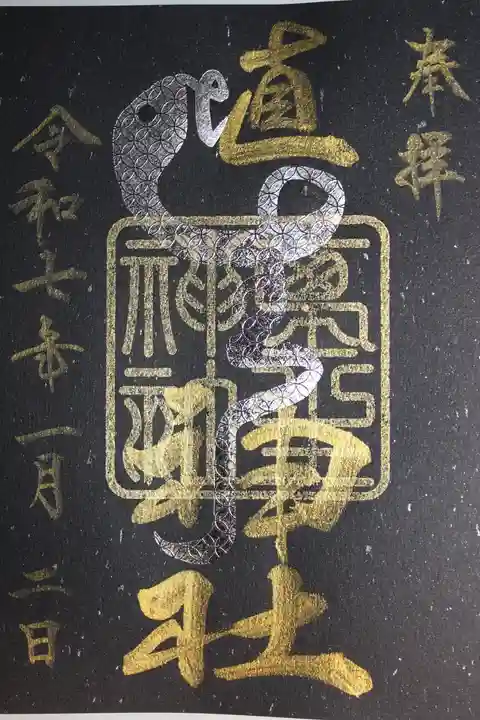 奉拝
直神社
神社
令和七年一月二日